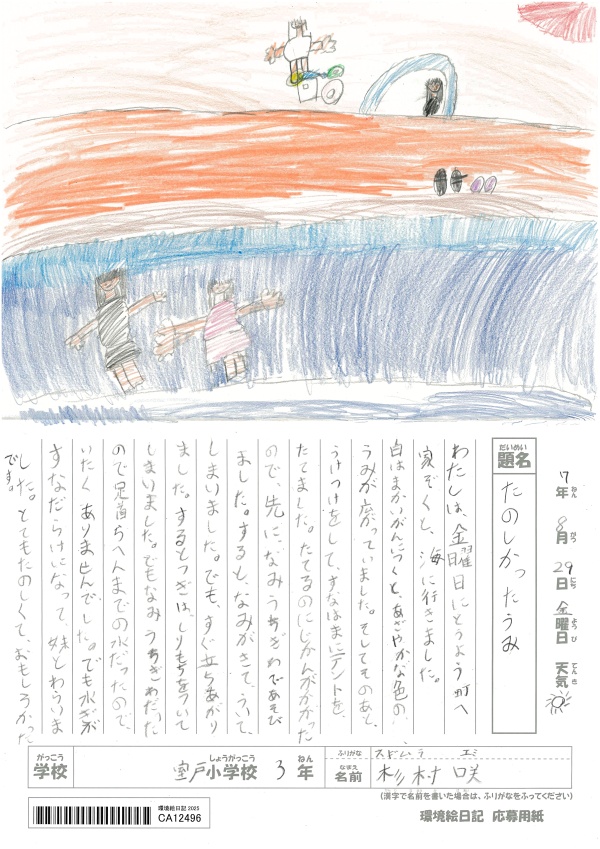 7年 8月 29日 金曜日 天気
ねん がつ にち ようび てんき
だいめい
題名
たのしかったうみ
わたしは、金曜日にとうよう町へ
家ぞくと、海に行きました。
白はまかいがんにつくと、あざやかな色の
うみが広がっていました。そしてそのあと、
うけつけをして、すなはまにテントを、
たてました。たてるのにじかんがかかった
ので、先に、なみうちぎわであそび
ました。すると、なみがきて、ういて、
しまいました。でも、すぐ立ちあがり
ました。するとつぎは、しりもちをついて
しまいました。でもなみうちぎわだった
ので足首らへんまでの水だったので、
いたくありませんでした。でも水ぎが
すなだらけになって、妹とわらいま
した。とてもたのしくて、おもしろかった
です。
がっこう しょうがっこう ねん
学校 室戸小学校 3年
ふりがな スギムラ エミ
なまえ
名前 杉村 咲
(漢字で名前を書いた場合は、ふりがなをふってください)
環境絵日記 2025
CA12496
環境絵日記 応募用紙